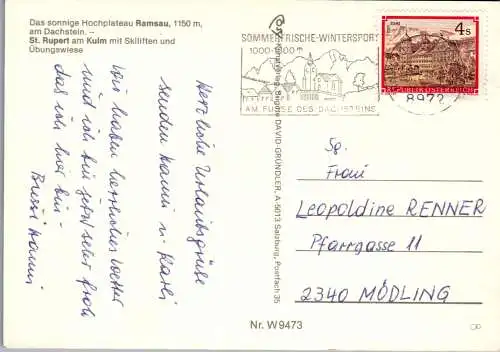 Das sonnige Hochplateau Ramsau, 1150 m,
am Dachstein. –
St. Rupert am Kulm mit Skiliften und
Übungswiese
SOMMERFRISCHE-WINTERSPORT
1000-3000 m
AM FUSSE DES DACHSTEINS
8972
4 S
REPUBLIK ÖSTERREICH
Herzliche Urlaubsgrüße
senden Hanni u. Karli
Wir haben herrliches Wetter
und ich bin jetzt sehr froh
das ich hier bin –
Bussi Hanni
DAVID-GRÜNDLER, A-5013 Salzburg, Postfach 35
Frau
Leopoldine RENNER
Pfarrgasse 11
2340 MÖDLING
Nr. W 9473